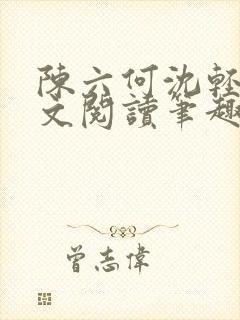 陳六何沈輕
文閱讀筆趣
曾志偉